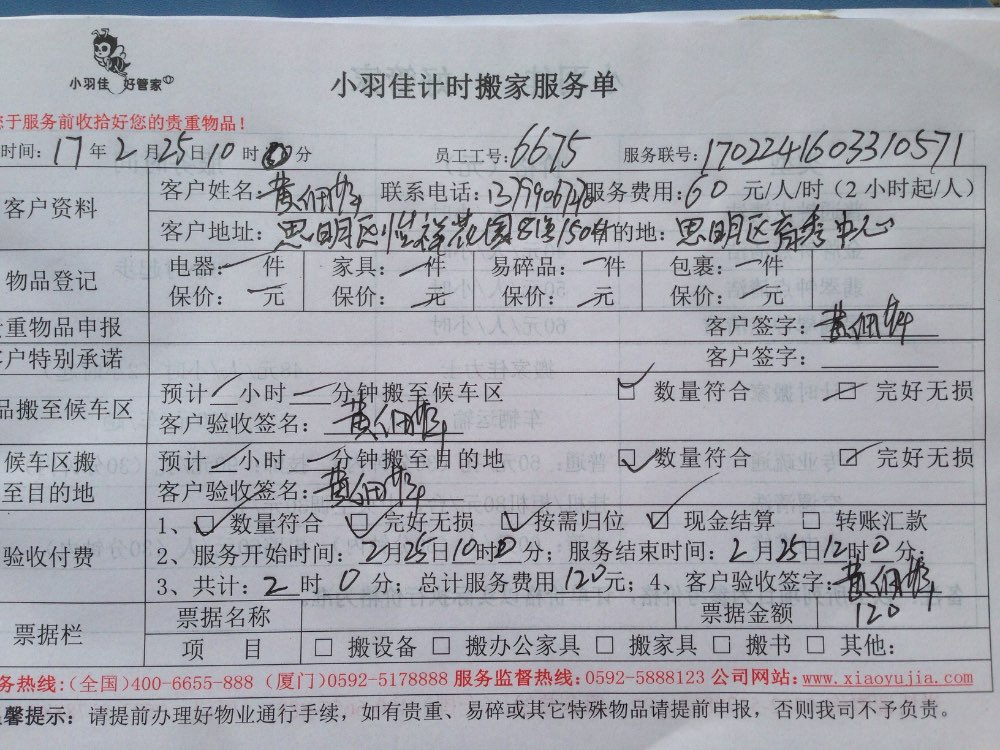 小羽佳 好管家
小羽佳计时搬家服务单
于服务前收拾好您的贵重物品！
时间：17年2月25日10时00分 员工工号：6675 服务联号：1702241603310571
客户资料 客户姓名： 联系电话： 服务费用：60元/人/时（2小时起/人）
客户地址：思明区 花园 的地：思明区 中心
物品登记 电器：一件 家具：一件 易碎品：一件 包裹：一件
保价：一元 保价：一元 保价：一元 保价：一元
重物品申报 客户签字：
户特别承诺 客户签字：
品搬至候车区 预计一小时一分钟搬至候车区 ☑ 数量符合 ☑ 完好无损
客户验收签名：
候车区搬至目的地 预计一小时一分钟搬至目的地 ☑ 数量符合 ☑ 完好无损
客户验收签名：
验收付费 1、☑ 数量符合 ☑ 完好无损 ☑ 按需归位 ☑ 现金结算 □ 转账汇款
2、服务开始时间：2月25日10时0分；服务结束时间：2月25日12时0分；
3、共计：2时0分；总计服务费用120元；4、客户验收签字：
票据栏 票据名称 票据金额 120
项 目 □ 搬设备 □ 搬办公家具 □ 搬家具 □ 搬书 □ 其他：
务热线：（全国）400-6655-888（厦门）0592-5178888 服务监督热线：0592-5888123 公司网站：www.xiaoyujia.com
馨提示：请提前办理好物业通行手续，如有贵重、易碎或其它特殊物品请提前申报，否则我司不予负责。